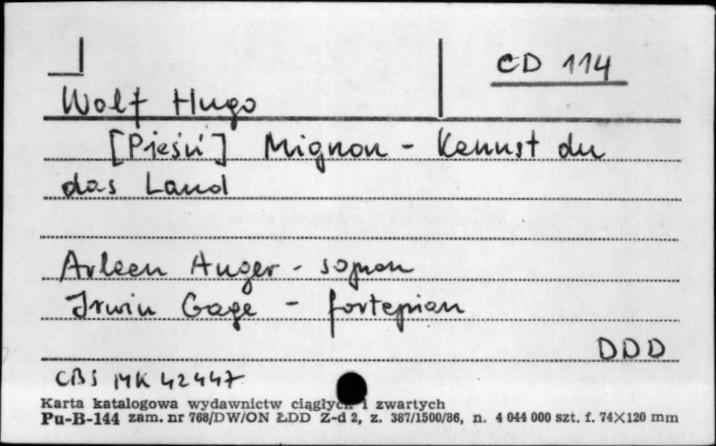 CD 114
Wolf Hugo
[Pieśń] Mignon - Kennst du
das Land
Arleen Auger - sopran
Irwin Gage - fortepian
DDD
CBS MK 42447
Karta katalogowa wydawnictw ciągłych i zwartych
Pu-B-144 zam. nr 768/DW/ON ŁDD Z-d 2, z. 387/1500/86, n. 4 044 000 szt. f. 74X120 mm